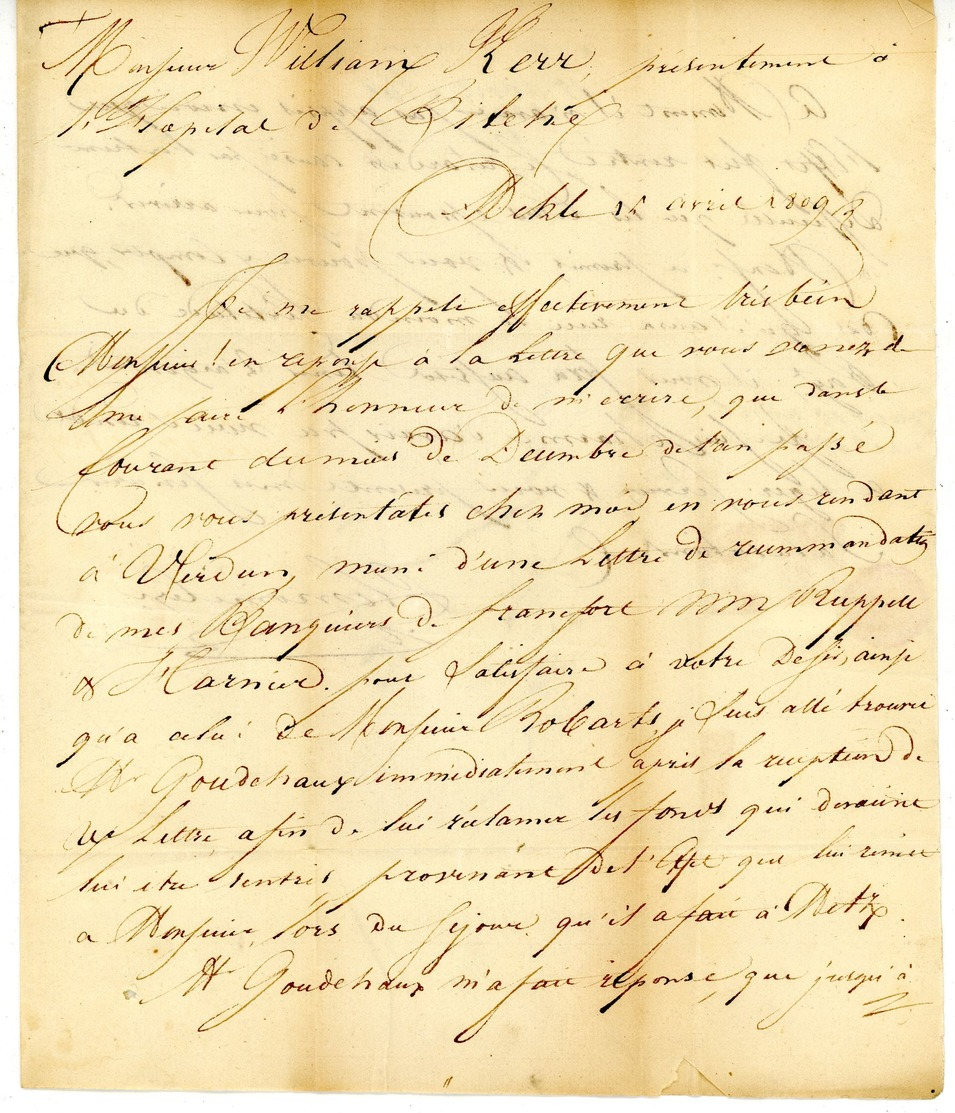 Monsieur William Kerr, présentement à
l'Hopital de Bitche
Metz le 15 avril 1809
Je me rappele effectivement très bien
Monsieur! en reponse a la Lettre que vous venez de
me faire l'honneur de m'ecrire, que dans le
Courant du mois de Decembre de l'an passé
vous vous présentates chez moi en vous rendant
à Verdun, muni d'une Lettre de recommandation
de mes Banquiers de francfort MM Ruppell
& Harnier. pour Satisfaire à votre Desir, ainsi
qu'a celui de Monsieur Robarts, je suis allé trouver
Mr Goudchaux immédiatement après la reception de
Vre Lettre, afin de lui réclamer les fonds qui devaient
lui etre rentrés provenant de l'Effet que lui remit
a Monsieur, lors du Sejour qu'il a fait à Metz.
Mr Goudchaux m'a fait réponse, que jusqu'à